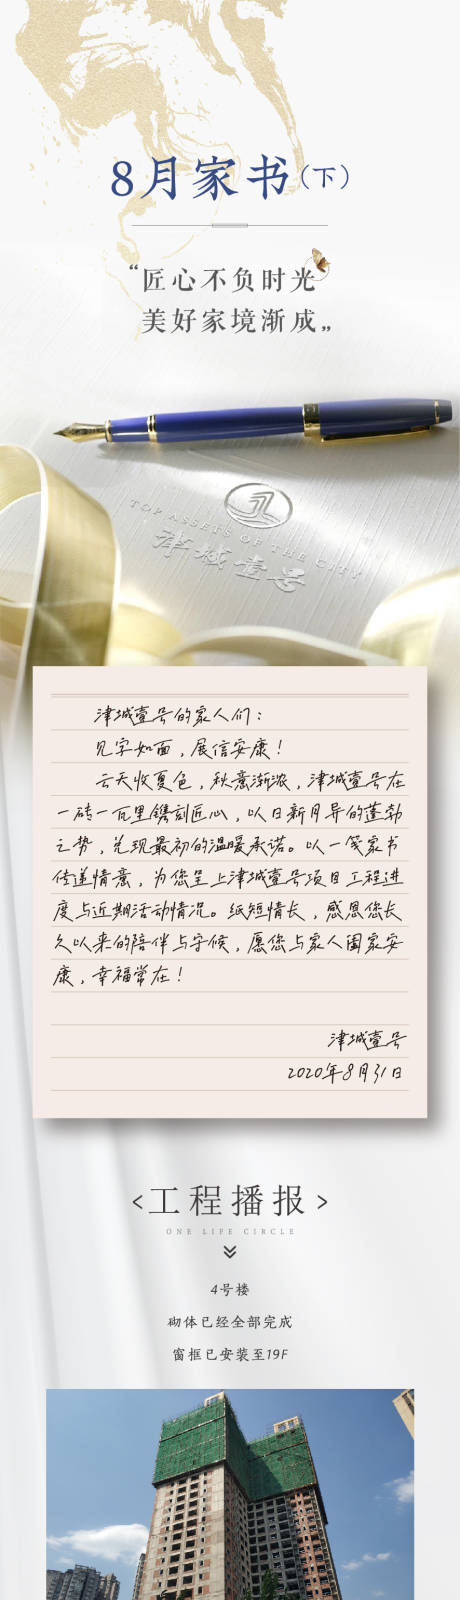 8月家书(下)
“匠心不负时光
美好家境渐成”
TOP ASSETS OF THE CITY
津城壹号
津城壹号的家人们：
见字如面，展信安康！
云天收夏色，秋意渐浓，津城壹号在
一砖一瓦里镌刻匠心，以日新月异的蓬勃
之势，兑现最初的温暖承诺。以一笺家书
传递情意，为您呈上津城壹号项目工程进
度与近期活动情况。纸短情长，感恩您长
久以来的陪伴与守候，愿您与家人阖家安
康，幸福常在！
津城壹号
2020年8月31日
<工程播报>
ONE LIFE CIRCLE
4号楼
砌体已经全部完成
窗框已安装至19F